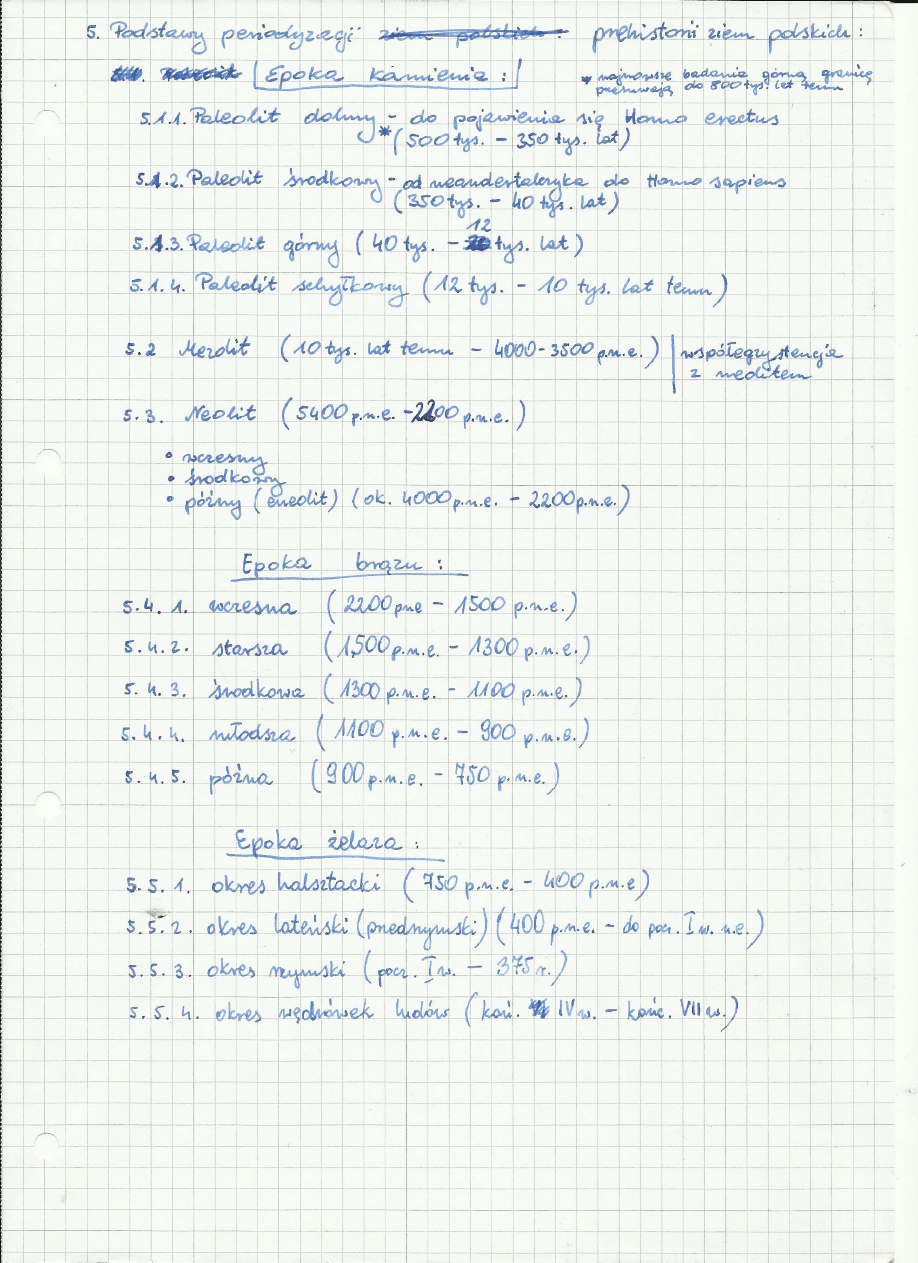 5. Podstawy periodyzacji prehistorii ziem polskich :
Epoka kamienia :
* najnowsze badania górną granicę
przesuwają do 800 tys. lat temu
5.1.1. Paleolit dolny - do pojawienia się Homo erectus
* (500 tys. - 350 tys. lat)
5.1.2. Paleolit środkowy - od neandertalczyka do Homo sapiens
(350 tys. - 40 tys. lat)
5.1.3. Paleolit górny (40 tys. - 12 tys. lat)
5.1.4. Paleolit schyłkowy (12 tys. - 10 tys. lat temu)
5.2 Mezolit (10 tys. lat temu - 4000-3500 p.n.e.) współegzystencja
z neolitem
5.3. Neolit (5400 p.n.e. - 2200 p.n.e.)
• wczesny
• środkowy
• późny (eneolit) (ok. 4000 p.n.e. - 2200 p.n.e.)
Epoka brązu :
5.4.1. wczesna (2200 pne - 1500 p.n.e.)
5.4.2. starsza (1500 p.n.e. - 1300 p.n.e.)
5.4.3. środkowa (1300 p.n.e. - 1100 p.n.e.)
5.4.4. młodsza (1100 p.n.e. - 900 p.n.e.)
5.4.5. późna (900 p.n.e. - 750 p.n.e.)
Epoka żelaza :
5.5.1. okres halsztacki (750 p.n.e. - 400 p.n.e)
5.5.2. okres lateński (przedrzymski) (400 p.n.e. - do pocz. I w. n.e.)
5.5.3. okres rzymski (pocz. I w. - 375 r.)
5.5.4. okres wędrówek ludów (koń. IV w. - końc. VII w.)